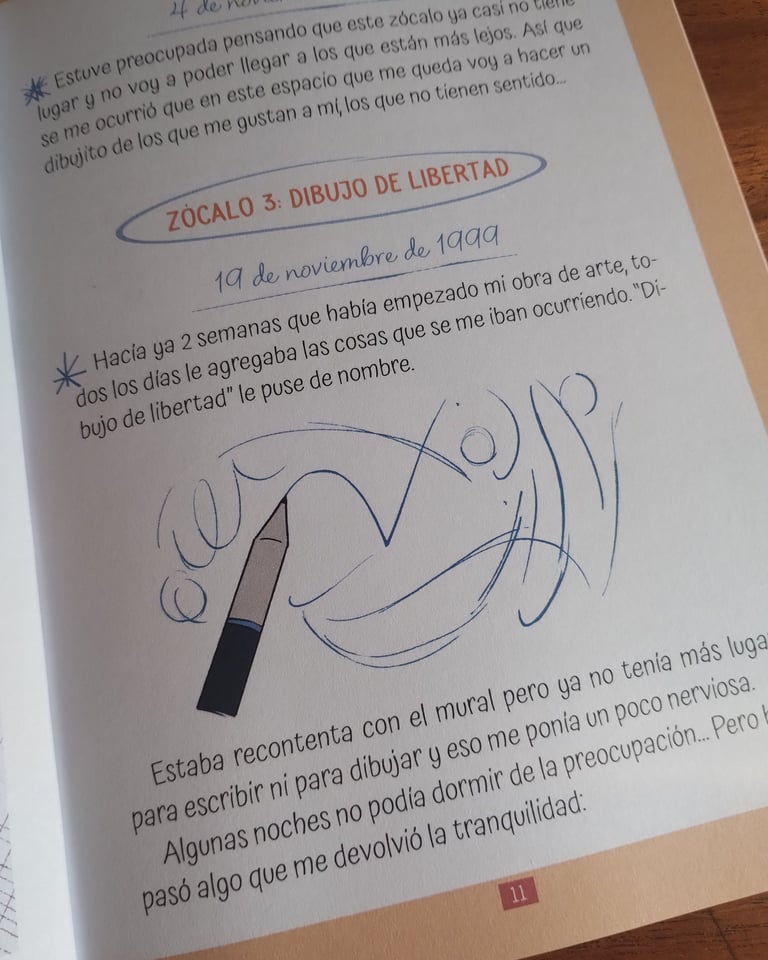 4 de
Estuve preocupada pensando que este zócalo ya casi no tiene
lugar y no voy a poder llegar a los que están más lejos. Así que
se me ocurrió que en este espacio que me queda voy a hacer un
dibujito de los que me gustan a mí, los que no tienen sentido...
ZÓCALO 3: DIBUJO DE LIBERTAD
19 de noviembre de 1999
Hacía ya 2 semanas que había empezado mi obra de arte, to-
dos los días le agregaba las cosas que se me iban ocurriendo. "Di-
bujo de libertad" le puse de nombre.
Estaba recontenta con el mural pero ya no tenía más luga
para escribir ni para dibujar y eso me ponía un poco nerviosa.
Algunas noches no podía dormir de la preocupación... Pero
pasó algo que me devolvió la tranquilidad:
11